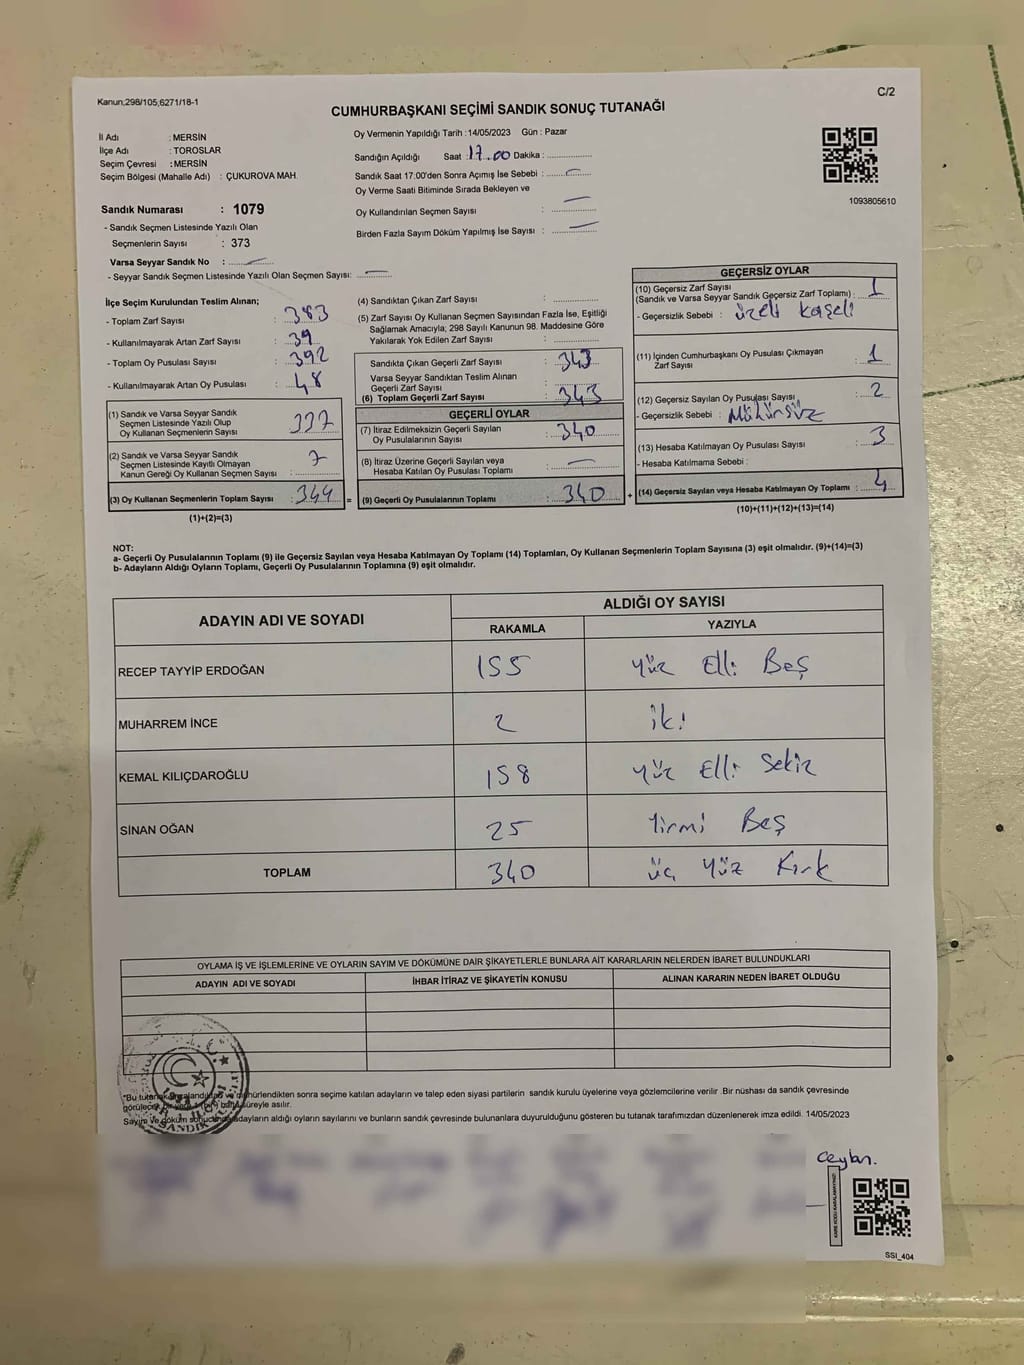 Kanun;298/105;6271/18-1
C/2
CUMHURBAŞKANI SEÇİMİ SANDIK SONUÇ TUTANAĞI
İl Adı : MERSİN
İlçe Adı : TOROSLAR
Seçim Çevresi : MERSİN
Seçim Bölgesi (Mahalle Adı) : ÇUKUROVA MAH.
Sandık Numarası : 1079
- Sandık Seçmen Listesinde Yazılı Olan
Seçmenlerin Sayısı : 373
Varsa Seyyar Sandık No :
- Seyyar Sandık Seçmen Listesinde Yazılı Olan Seçmen Sayısı:
Oy Vermenin Yapıldığı Tarih : 14/05/2023 Gün : Pazar
Sandığın Açıldığı Saat : 17.00 Dakika :
Sandık Saat 17:00'den Sonra Açımış İse Sebebi :
Oy Verme Saati Bitiminde Sırada Bekleyen ve
Oy Kullandırılan Seçmen Sayısı :
Birden Fazla Sayım Döküm Yapılmış İse Sayısı :
1093805610
İlçe Seçim Kurulundan Teslim Alınan;
- Toplam Zarf Sayısı : 383
- Kullanılmayarak Artan Zarf Sayısı : 39
- Toplam Oy Pusulası Sayısı : 392
- Kullanılmayarak Artan Oy Pusulası : 48
(1) Sandık ve Varsa Seyyar Sandık
Seçmen Listesinde Yazılı Olup
Oy Kullanan Seçmenlerin Sayısı : 337
(2) Sandık ve Varsa Seyyar Sandık
Seçmen Listesinde Kayıtlı Olmayan
Kanun Gereği Oy Kullanan Seçmen Sayısı : 7
(3) Oy Kullanan Seçmenlerin Toplam Sayısı : 344 =
(1)+(2)=(3)
(4) Sandıktan Çıkan Zarf Sayısı :
(5) Zarf Sayısı Oy Kullanan Seçmen Sayısından Fazla İse, Eşitliği
Sağlamak Amacıyla; 298 Sayılı Kanunun 98. Maddesine Göre
Yakılarak Yok Edilen Zarf Sayısı :
Sandıkta Çıkan Geçerli Zarf Sayısı : 343
Varsa Seyyar Sandıktan Teslim Alınan
Geçerli Zarf Sayısı :
(6) Toplam Geçerli Zarf Sayısı : 343
GEÇERLİ OYLAR
(7) İtiraz Edilmeksizin Geçerli Sayılan
Oy Pusulalarının Sayısı : 340
(8) İtiraz Üzerine Geçerli Sayılan veya
Hesaba Katılan Oy Pusulası Toplamı :
(9) Geçerli Oy Pusulalarının Toplamı : 340 +
GEÇERSİZ OYLAR
(10) Geçersiz Zarf Sayısı
(Sandık ve Varsa Seyyar Sandık Geçersiz Zarf Toplamı) : 1
- Geçersizlik Sebebi : üzeri kaşeli
(11) İçinden Cumhurbaşkanı Oy Pusulası Çıkmayan
Zarf Sayısı : 1
(12) Geçersiz Sayılan Oy Pusulası Sayısı : 2
- Geçersizlik Sebebi : Mühürsüz
(13) Hesaba Katılmayan Oy Pusulası Sayısı : 3
- Hesaba Katılmama Sebebi :
(14) Geçersiz Sayılan veya Hesaba Katılmayan Oy Toplamı : 4
(10)+(11)+(12)+(13)=(14)
NOT:
a- Geçerli Oy Pusulalarının Toplamı (9) ile Geçersiz Sayılan veya Hesaba Katılmayan Oy Toplamı (14) Toplamları, Oy Kullanan Seçmenlerin Toplam Sayısına (3) eşit olmalıdır. (9)+(14)=(3)
b- Adayların Aldığı Oyların Toplamı, Geçerli Oy Pusulalarının Toplamına (9) eşit olmalıdır.
ADAYIN ADI VE SOYADI
ALDIĞI OY SAYISI
RAKAMLA YAZIYLA
RECEP TAYYİP ERDOĞAN 155 Yüz Elli Beş
MUHARREM İNCE 2 iki
KEMAL KILIÇDAROĞLU 158 Yüz Elli Sekiz
SİNAN OĞAN 25 Yirmi Beş
TOPLAM 340 üç Yüz Kırk
OYLAMA İŞ VE İŞLEMLERİNE VE OYLARIN SAYIM VE DÖKÜMÜNE DAİR ŞİKAYETLERLE BUNLARA AİT KARARLARIN NELERDEN İBARET BULUNDUKLARI
ADAYIN ADI VE SOYADI İHBAR İTİRAZ VE ŞİKAYETİN KONUSU ALINAN KARARIN NEDEN İBARET OLDUĞU
"Bu tutanak ve mühürlendikten sonra seçime katılan adayların ve talep eden siyasi partilerin sandık kurulu üyelerine veya gözlemcilerine verilir .Bir nüshası da sandık çevresinde
süreyle asılır.
Sayım ve döküm sonucunda adayların aldığı oyların sayılarını ve bunların sandık çevresinde bulunanlara duyurulduğunu gösteren bu tutanak tarafımızdan düzenlenerek imza edildi. 14/05/2023
SANDIK
Ceylan.
KARE KODU KARALAMAYINIZ!
SSI_404